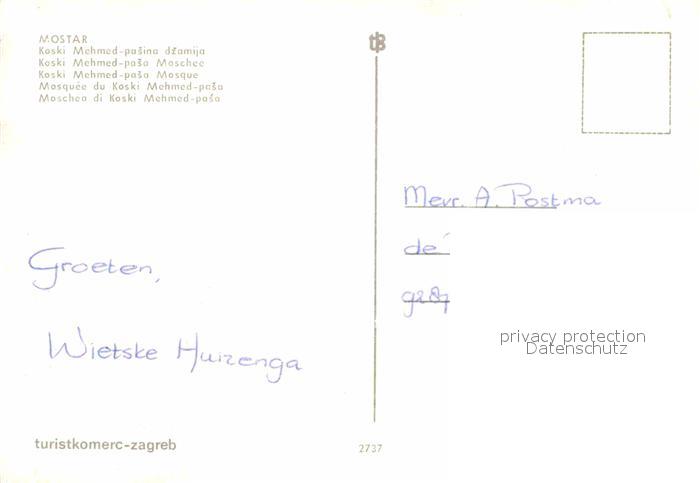 MOSTAR
Koski Mehmed-pašina džamija
Koski Mehmed-paša Moschee
Koski Mehmed-paša Mosque
Mosquée du Koski Mehmed-paša
Moschea di Koski Mehmed-paša
Groeten,
Wietske Huizenga
turistkomerc-zagreb
2737
Mevr. A. Postma
de
9287
privacy protection
Datenschutz